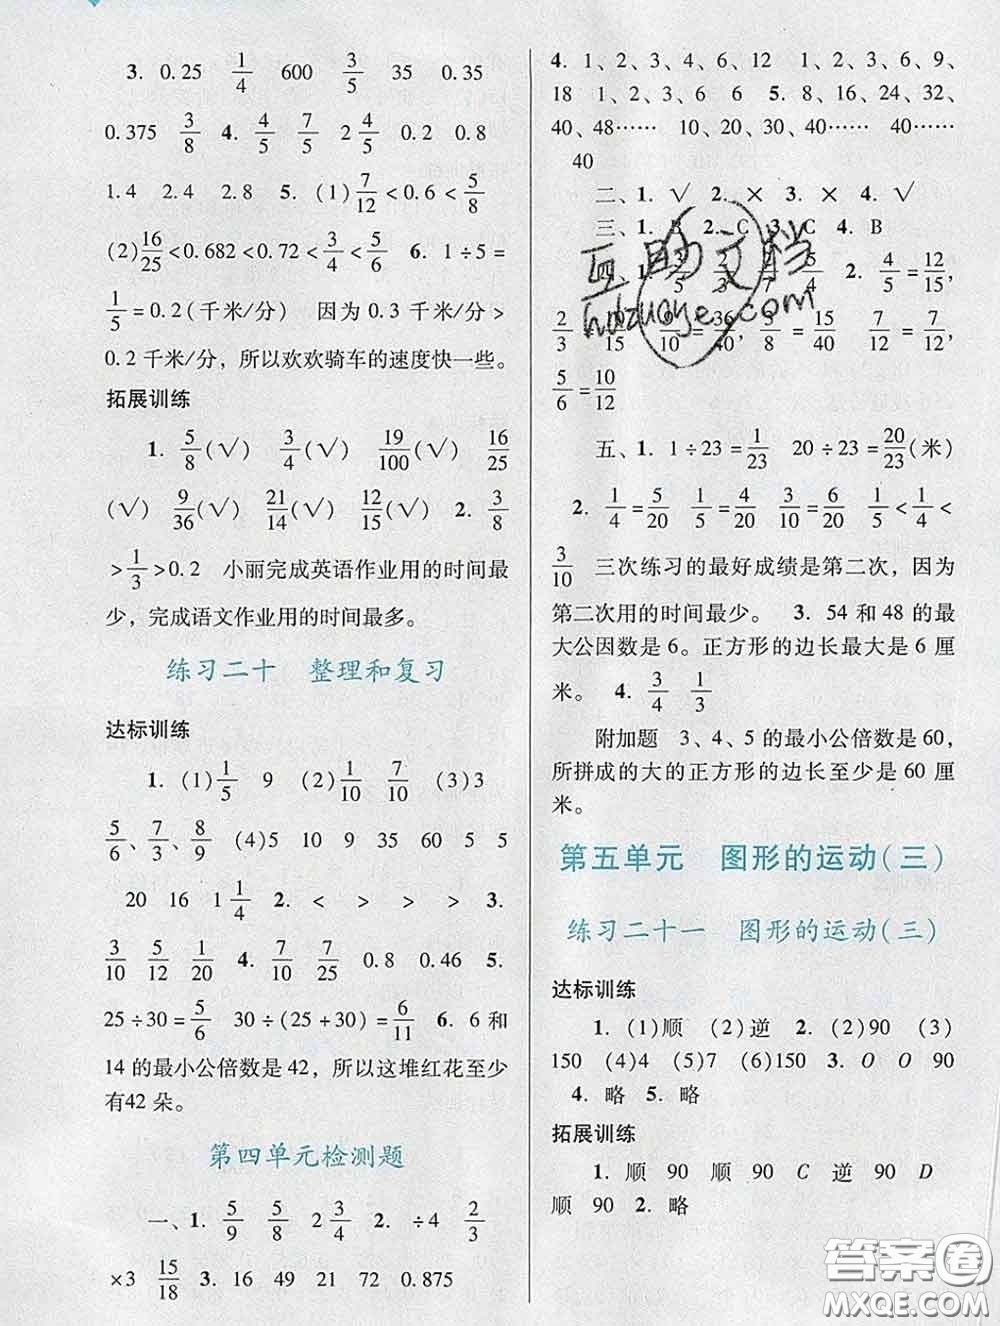 3. 0.25 1/4 600 3/5 35 0.35
0.375 3/8 4. 4/5 7/5 2 4/5 0.2 0.8
1.4 2.4 2.8 5. (1) 7/12 < 0.6 < 5/8
(2) 16/25 < 0.682 < 0.72 < 3/4 < 5/6 6. 1÷5=
1/5 = 0.2(千米/分) 因为 0.3 千米/分>
0.2 千米/分，所以欢欢骑车的速度快一些。
拓展训练
1. 5/8(√) 3/4(√) 19/100(√) 16/25
(√) 9/36(√) 21/14(√) 12/15(√) 2. 3/8
> 1/3 > 0.2 小丽完成英语作业用的时间最
少，完成语文作业用的时间最多。
练习二十 整理和复习
达标训练
1. (1) 1/5 9 (2) 1/10 7/10 (3)3
5/6、7/3、8/9 (4)5 10 9 35 60 5 5
20 16 1 1/4 2. < > > > 3.
3/10 5/12 1/20 4. 7/10 7/25 0.8 0.46 5.
25÷30= 5/6 30÷(25+30)= 6/11 6. 6 和
14 的最小公倍数是 42，所以这堆红花至少
有42 朵。
第四单元检测题
一、1. 5/9 5/8 2 3/4 2. ÷4 2/3
×3 15/18 3. 16 49 21 72 0.875
4. 1、2、3、4、6、12 1、2、3、6、9、
18 1、2、3、6 6 5. 8、16、24、32、
40、48…… 10、20、30、40…… 40……
40
二、1. √ 2. × 3. × 4. √
三、1. B 2. C 3. C 4. B
四、1. 3/2 2/3 2/7 5/4 2. 4/5 = 12/15，
2/3 15 6/10 36/40，3/8 = 15/40 7/8 = 7/8，
5/6 = 10/12
五、1. 1÷23= 1/23 20÷23= 20/23(米)
2. 1/4 = 5/20 1/5 = 4/20 3/10 = 6/20 1/5 < 1/4 <
3/10 三次练习的最好成绩是第二次，因为
第二次用的时间最少。 3. 54 和 48 的最
大公因数是 6。正方形的边长最大是 6 厘
米。 4. 3/4 1/3
附加题 3、4、5 的最小公倍数是 60，
所拼成的大的正方形的边长至少是 60 厘
米。
第五单元 图形的运动(三)
练习二十一 图形的运动(三)
达标训练
1. (1)顺 (2)逆 2. (2)90 (3)
150 (4)4 (5)7 (6)150 3. O O 90
4. 略 5. 略
拓展训练
1. 顺 90 顺 90 C 逆 90 D
顺 90 2. 略
互助文档
hdzuoye.com
答案圈
MXQE.COM